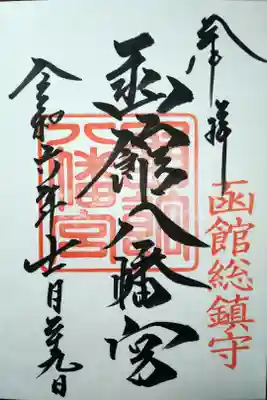 奉拝
函館総鎮守
函館八幡宮
函館
八幡宮
令和六年十一月廿九日